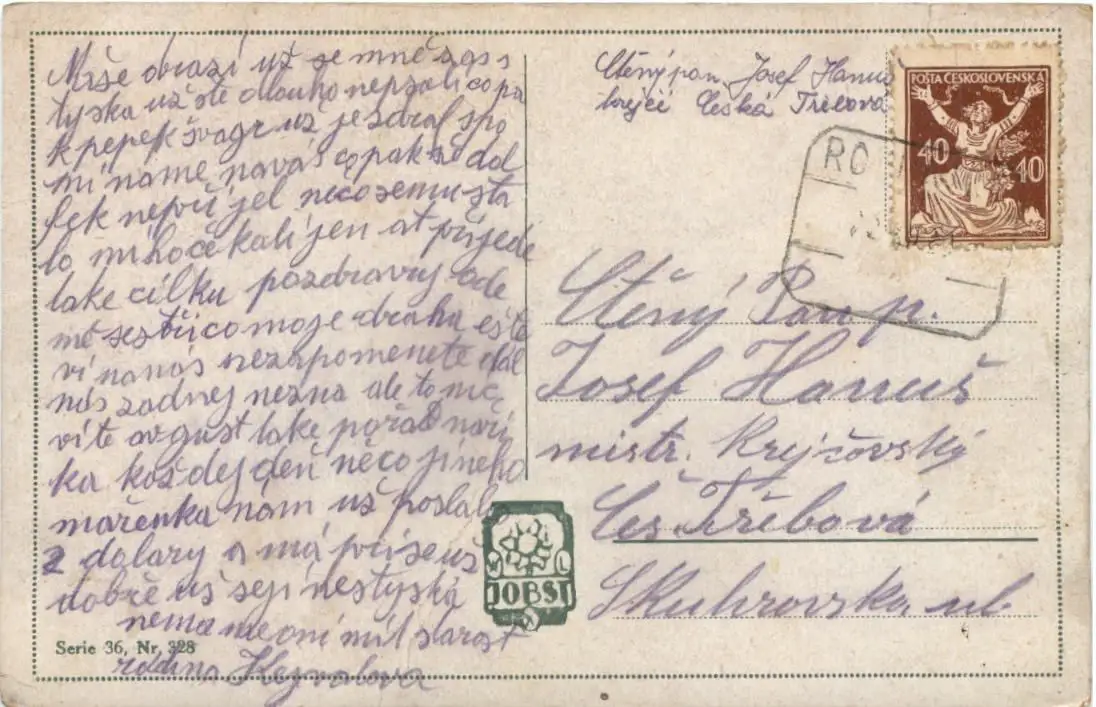 Milše obrazí už se mně zas s
tyska už ste dlouho nepsali copa
k pepek švagr už je zdral spo
mí náme na vás copak že dal
lek nepřijel neco se mu sta
lo mi ho čekali jen at příjede
take cílku pozdravuj ode
mě sestřico moje draha ešte
ví na nás nezapomenete dál
nás žadnej nezna ale to me
vite avgust take pořad naří
ka každej deň něco jineho
mařenka nám už poslala
2 dolary a má príse už
dobře už se ji nestyská
nema me oni mít starost
rodina Hejvalova
Serie 36, Nr. 328
W L
JOBST
Ctěný pan Josef Hanus
krejčí Česká Třebova
POŠTA ČESKOSLOVENSKÁ
40 40
RO
Ctěný Pan p.
Josef Hanuš
mistr. Krejčovský
Čes Třebová
Skuhrovska ul.